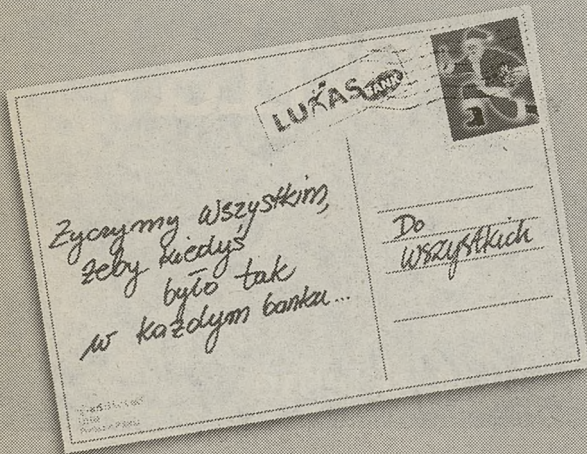 LUKAS BANK
Życzymy wszystkim,
żeby kiedyś
było tak
w każdym banku...
Do
wszystkich